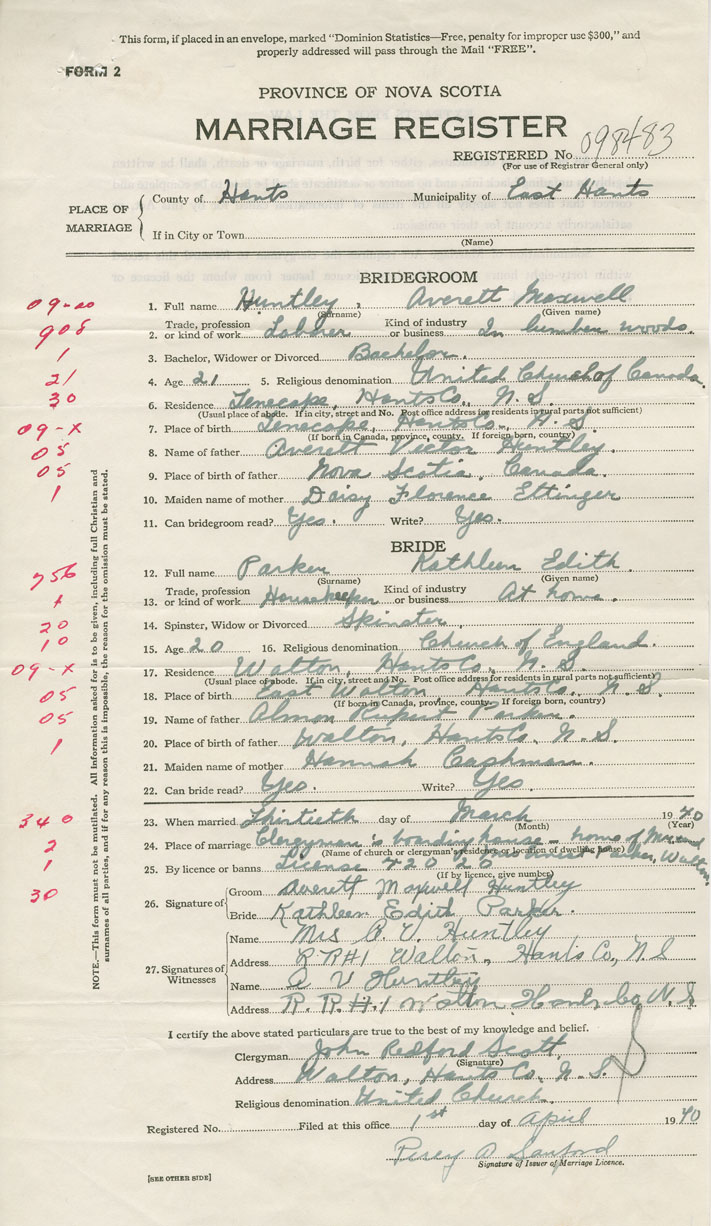 This form, if placed in an envelope, marked "Dominion Statistics—Free, penalty for improper use $300," and
properly addressed will pass through the Mail "FREE".
FORM 2
PROVINCE OF NOVA SCOTIA
MARRIAGE REGISTER
REGISTERED No. 098483
(For use of Registrar General only)
PLACE OF MARRIAGE
County of Hants Municipality of East Hants
If in City or Town
(Name)
BRIDEGROOM
09-00 1. Full name Huntley, Averett Maxwell
(Surname) (Given name)
908 2. Trade, profession or kind of work Lobber Kind of industry or business In lumber woods.
1 3. Bachelor, Widower or Divorced Bachelor.
21 4. Age 21 5. Religious denomination United Church of Canada.
30 6. Residence Tenecape, Hants Co., N. S.
(Usual place of abode. If in city, street and No. Post office address for residents in rural parts not sufficient)
09-X 7. Place of birth Tenecape, Hants Co., N. S.
(If born in Canada, province, county. If foreign born, country)
05 8. Name of father Averett Victor Huntley
05 9. Place of birth of father Nova Scotia, Canada.
1 10. Maiden name of mother Daisy Florence Ettinger
11. Can bridegroom read? Yes. Write? Yes.
BRIDE
756 12. Full name Parker Kathleen Edith.
(Surname) (Given name)
13. Trade, profession or kind of work Housekeeper Kind of industry or business At home.
20 14. Spinster, Widow or Divorced Spinster.
10 15. Age 20 16. Religious denomination Church of England.
09-X 17. Residence Walton, Hants Co., N. S.
(Usual place of abode. If in city, street and No. Post office address for residents in rural parts not sufficient)
05 18. Place of birth East Walton Hants Co., N. S.
(If born in Canada, province, county. If foreign born, country)
05 19. Name of father Almon Rupert Parker.
1 20. Place of birth of father Walton, Hants Co. N. S.
21. Maiden name of mother Hannah Cashman.
22. Can bride read? Yes. Write? Yes.
340 23. When married Thirtieth day of March 1940
(Month) (Year)
2 24. Place of marriage Clergyman's boarding house - home of Mr. and
(Name of church or clergyman's residence or location of dwelling house)
Parker, Walton.
1 25. By licence or banns License 42020
(If by licence, give number)
30 26. Signature of
Groom Averett Maxwell Huntley
Bride Kathleen Edith Parker.
27. Signatures of Witnesses
Name Mrs. A. V. Huntley
Address R R #1 Walton, Hants Co, N. S
Name A V Huntley
Address R. R. #.1 Walton Hants Co N. S.
I certify the above stated particulars are true to the best of my knowledge and belief.
Clergyman John Redford Scott
(Signature)
Address Walton, Hants Co. N. S.
Religious denomination United Church.
Registered No. Filed at this office 1st day of April 1940
Percy A Sanford
Signature of Issuer of Marriage Licence.
[SEE OTHER SIDE]
NOTE.—This form must not be mutilated. All information asked for is to be given, including full Christian and
surnames of all parties, and if for any reason this is impossible, the reason for the omission must be stated.